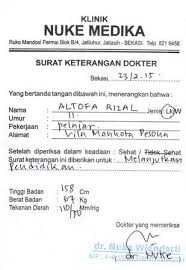 KLINIK
NUKE MEDIKA
Ruko Mandosi Permai Blok B/4, Jatiluhur, Jatiasih - BEKASI. Telp 821 6458
SURAT KETERANGAN DOKTER
Bekasi, 23/2.15
Yang bertanda tangan dibawah ini, menerangkan bahwa :
Nama : ALTOFA RIZAL Jenis : Lk/W
Umur : 11
Pekerjaan : pelajar
Alamat : Vila Mahkota Pesona
Setelah diperiksa dalam keadaan : Sehat / Tidak Sehat
Surat keterangan ini diberikan untuk : Melanjutkan
Pendidikan.
Tinggi Badan : 158 Cm
Berat Badan : 67 Kg.
Tekanan Darah : 110/ Mm/Hg
Dokter yang memeriksa
dr. Nuke Wiendarti
dr Nuke